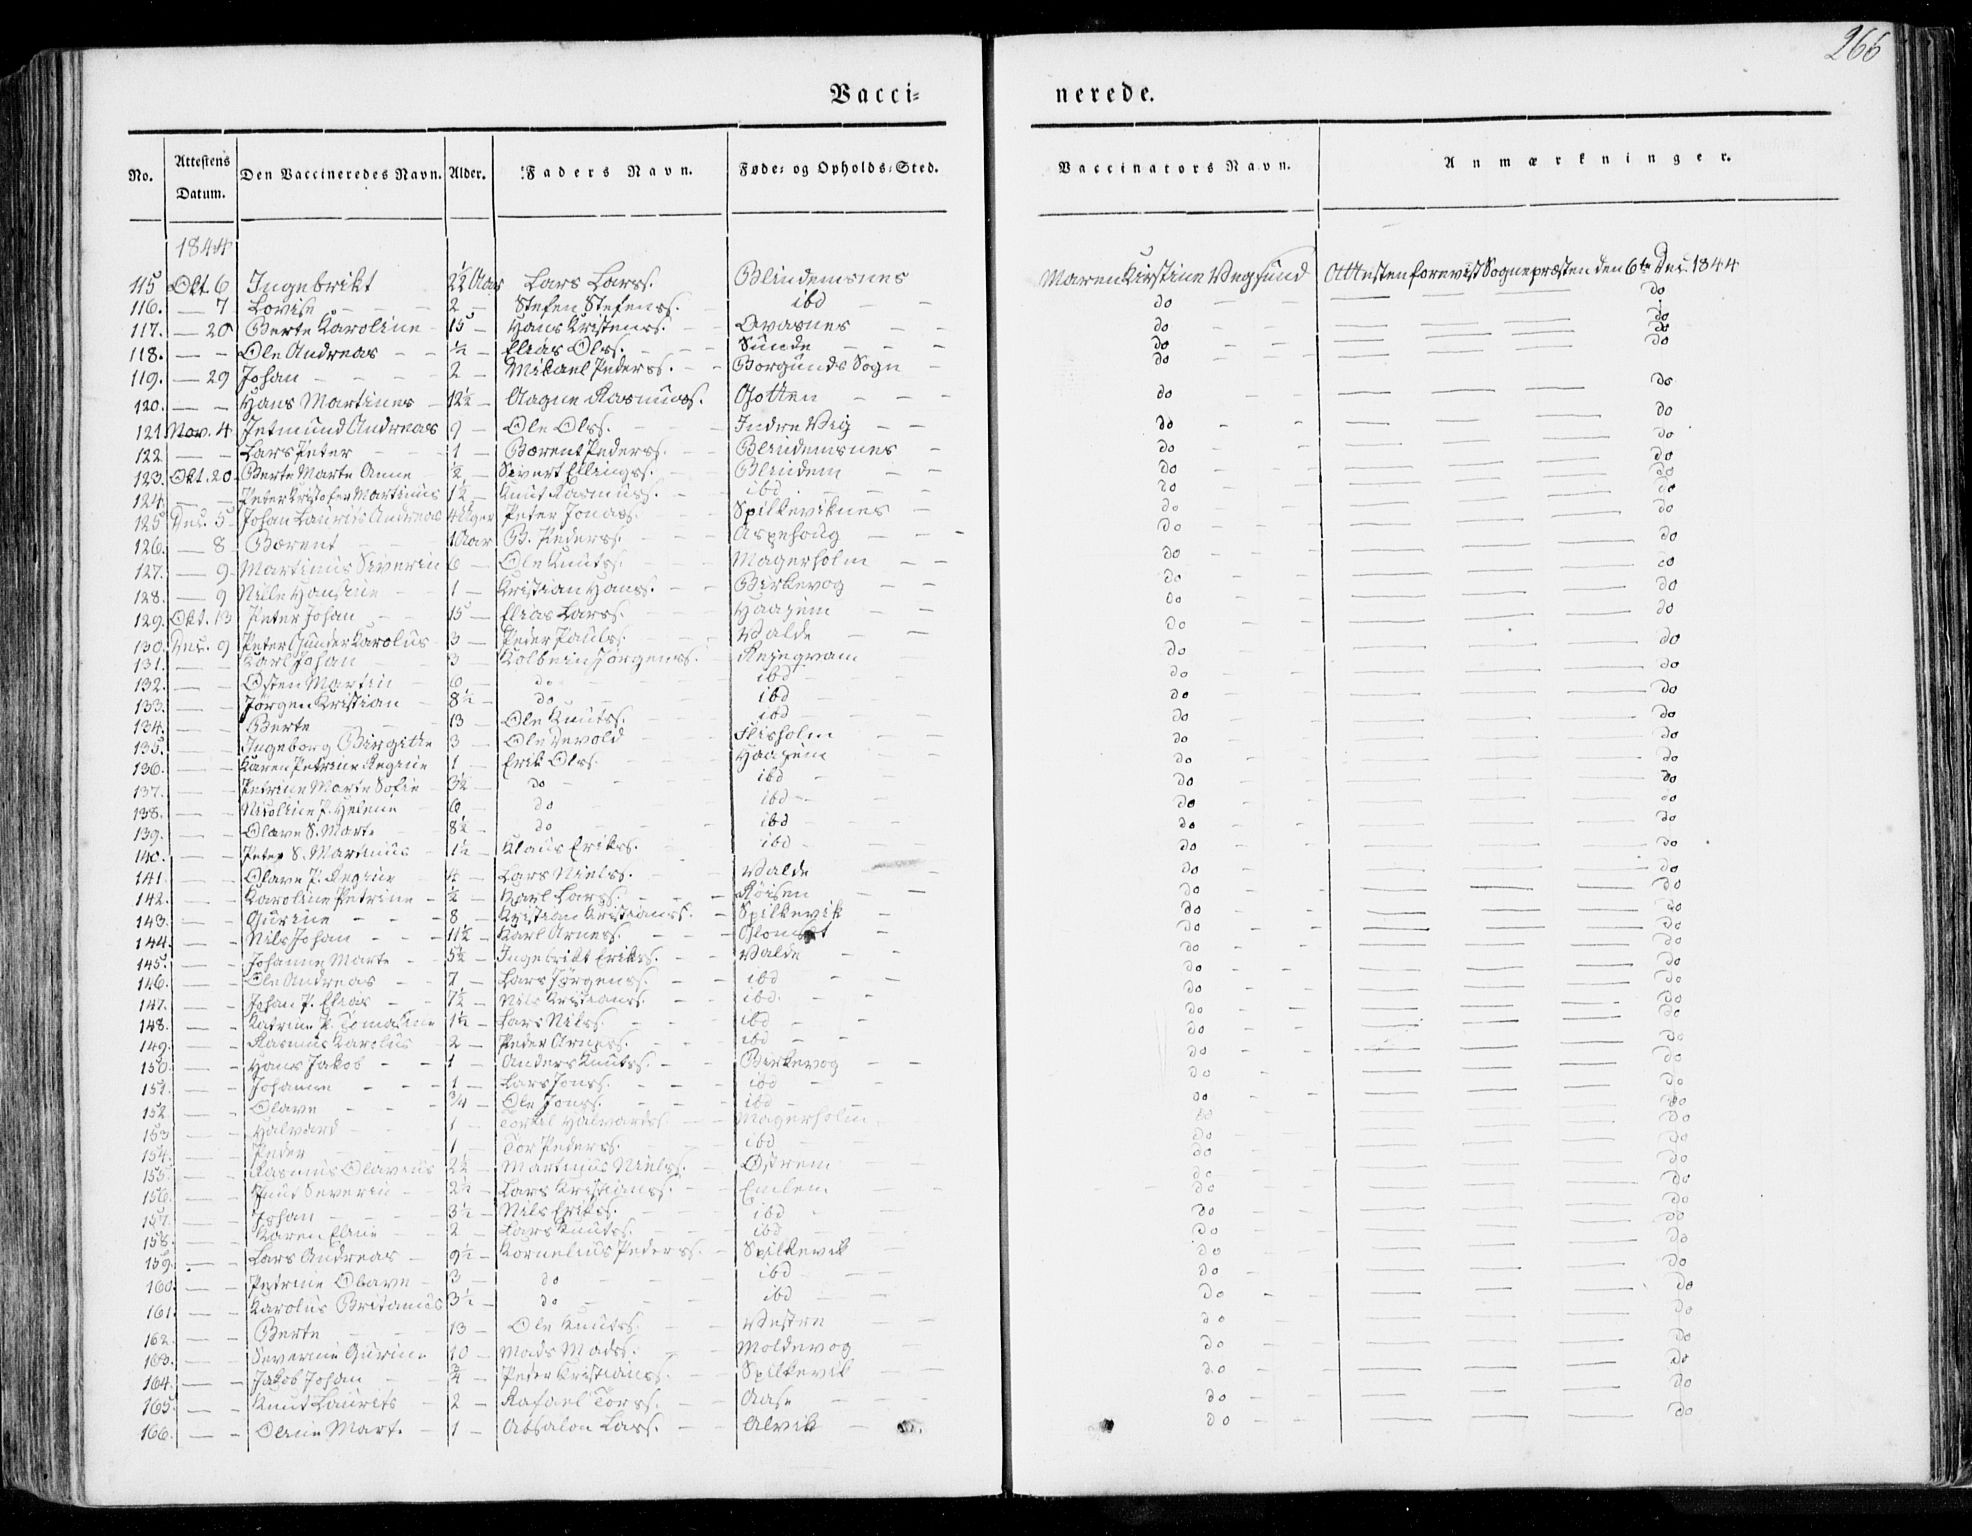 266
Vacci= nerede.
No. Attestens Datum. Den Vaccineredes Navn. Alder. Faders Navn. Føde= og Opholds=Sted. Vaccinators Navn. Anmærkninger.
1844
115 Okt. 6 Ingebrikt 2½ Aar Lars Larss. Blindemsnes Maren Kirstine Vegsund Attesten forevist Sognepræsten den 6te Dec. 1844
116. — 7 Lovise — 2 — Stefen Stefenss. — ibd do — — do
117. — 20 Berte Karoline 15 — Hans Kristenss. — Avasnes — — do — — do
118. — — Ole Andreas — — ½ — Elias Olss. — — Sunde — — do — — do
119. — 29 Johan — — 2 — Mikael Pederss. — Borgunds Sogn — do — — do
120. — — Hans Martines — 12½ — Aagne Rasmuss. Gotten — — do — — do
121 Nov. 4 Jetmund Andreas 9 — Ole Olss. — Indre Vig — — do — — do
122 — — Lars Peter — 1 — Bærent Pederss. — Blindemsnes — do — — do
123. Okt. 20 Berte Marte Anne — ½ — Sivert Ellingss. — Blindem — — do — — do
124. — — Peter Kristofer Martinus 1½ — Knut Rasmuss. — ibd — do — — do
125 Dec. 5 Johan Laurits Andreas 4 Uger Peter Jonass. — Spilkeviknes — do — — do
126. — 8 Bærent — 1 Aar B. Pederss. — Aspehoug — — do — — do
127. — 9 Martinus Siverin 6 — Ole Knutss. — Magerholm — — do — — do
128. — 9 Nille Hansine — 1 — Kristian Hanss. — Birkevog — — do — — do
129. Okt. 13 Peter Johan — 15 — Elias Larss. — Haagem — — do — — do
130. Dec. 9 Peter Karolus 3 — Peder Paulss. — Valde — — do — — do
131. — — Karl Johan — 3 — Kolbein Jørgenss. — do — — do
132. — — Østen Martin — 6 — do — ibd — do — — do
133. — — Jørgen Kristian — 8½ — do — ibd — do — — do
134. — — Berte — 13 — Ole Knutss. — ibd — do — — do
135. — — Ingeborg Birgitte 3 — Ole Devold — Flisholm — do — — do
136. — — Karen Petrine Regine 1 — Erik Olss. — Haagem — do — — do
137. — — Petrine Marte Sofie 3½ — do — ibd — do — — do
138. — — Nicoline P. Helene 6 — do — ibd — do — — do
139. — — Olave S. Marte 8½ — do — ibd — do — — do
140. — — Peter S. Martinus 1½ — Klaus Erikss. ibd — do — — do
141 — — Olave P. Regine — Lars Nielss. — Valde do — — do
142. — — Karoline Petrine — ½ — Karl Larss. — Røisen — do — — do
143. — — Gurine — 8 — Kristian Kristianss. — Spilkevik — do — — do
144. — — Nils Johan — 11½ — Karl Arness. — Blomset — do — — do
145. — — Johanne Marte — 5½ — Ingebrikt Erikss. — Valde — do — — do
146. — — Ole Andreas — 7 — Lars Jørgenss. — ibd — do — — do
147. — — Johan P. Elias — 7½ — Nils Kristianss. — ibd. — do — — do
148. — — Katrine P. Tomasine 1½ — Lars Nilss. — ibd — do — — do
149. — — Rasmus Karolus 2 — Peder Arness. — ibd — do — — do
150. — — Hans Jakob — 1 — Anders Knutss. — Birkevog — do — — do
151. — — Johanne — 1 — Lars Jonss. — ibd — do — — do
152 — — Olave — ¾ — Ole Jonss. — ibd — do — — do
153 — — Halvard — 1 — Torkel Halvardss. — Magerholm — do — — do
154. — — Peder — 1 — Tor Pederss. — ibd — do — — do
155. — — Rasmus Olavus 2½ — Martinus Nielss. — Østrem — do — — do
156. — — Knut Severin — 2½ — Lars Kristianss. — Emlem. — do — — do
157. — — Johan — 3½ — Nils Erikss. — ibd — do — — do
158. — — Karen Eline — 2 — Lars Knutss. — ibd — do — — do
159. — — Lars Andreas — 9½ — Kornelius Pederss. — Spilkevik — do — — do
160. — — Petrine Olave — 3 — do — ibd — do — — do
161. — — Karolus Britanus 3½ — do — ibd — do — — do
162. — — Berte — 13 — Ole Knutss. — Vestre — do — — do
163. — — Severine Gurine 10 — Mads Madss. — Moldevog — do — — do
164. — — Jakob Johan — Peder Kristianss. — Spilkevik — do — — do
165. — — Knut Laurits — 2 — Rafael Torss. — Aase — do — — do
166. — — Oline Mart. — 1 — Absalon Larss. — Alvik — do — — do